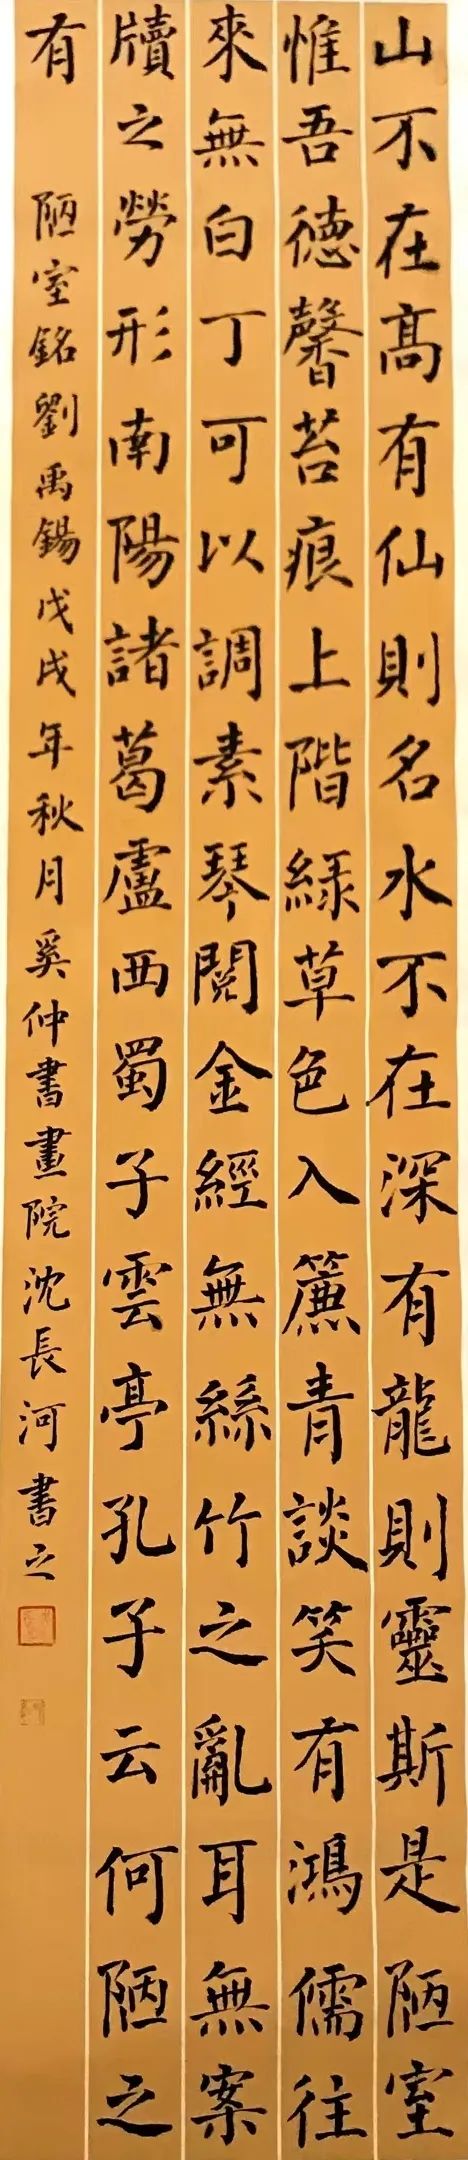 山不在髙有仙則名水不在深有龍則靈斯是陋室
惟吾徳馨苔痕上階緑草色入簾青談笑有鴻儒往
來無白丁可以調素琴閲金經無絲竹之亂耳無案
牘之勞形南陽諸葛廬西蜀子雲亭孔子云何陋之
有 陋室銘劉禹錫戊戌年秋月奚仲書畫院沈長河書之